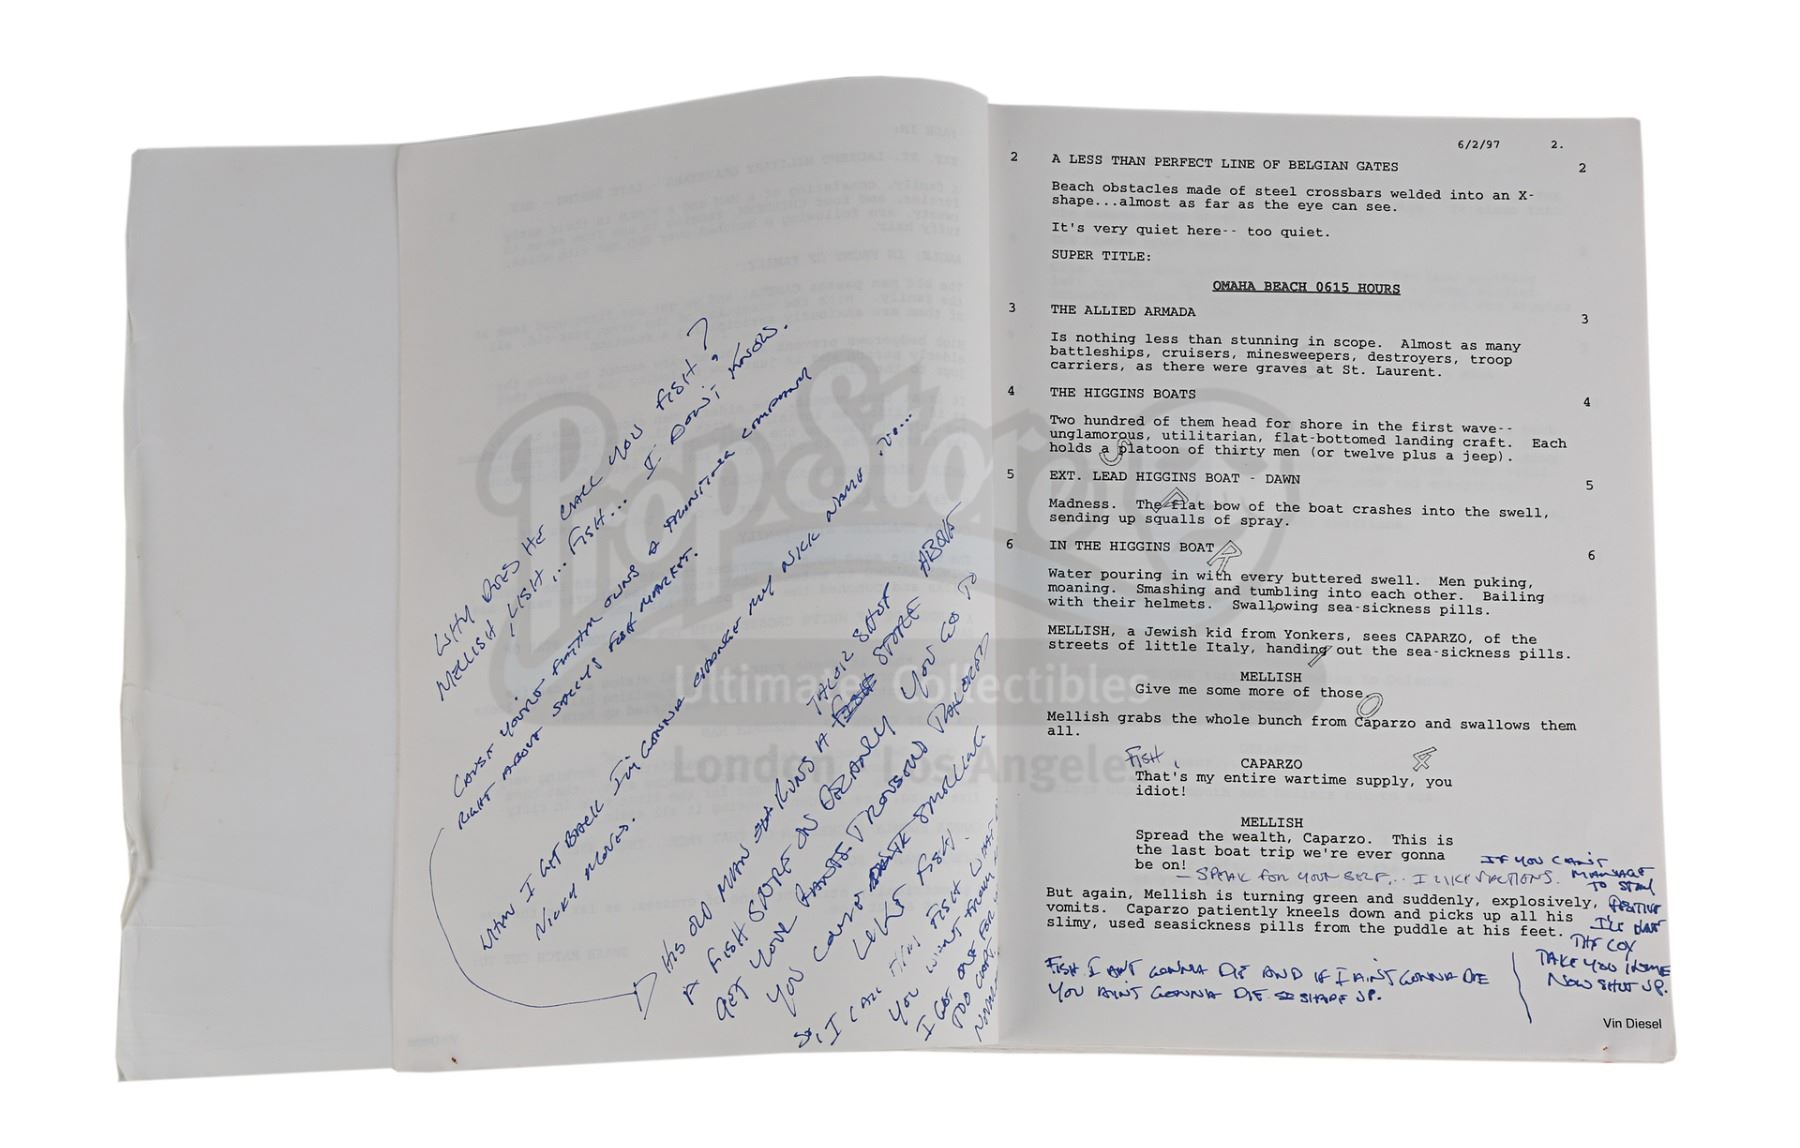 WHY DOES HE CALL YOU FISH?
MELLISH, LISH,... FISH... I DON'T KNOW.
CAUSE YOUR FATHER OWNS A FURNITURE COMPANY
RIGHT ABOVE SALLY'S FISH MARKET.
WHEN I GET BACK I'M GONNA CHANGE MY NICK NAME TO...
NICKY
HIS OLD MAN RUNS A TAILOR SHOP ABOVE
A FISH STORE ON DELANCY YOU GO TO
GET YOUR PANTS TAILORED
YOU COME SMELLING
LIKE FISH.
SO, I CALL HIM FISH
YOU WANT FROM
I GOT ONE FOR
TOO
6/2/97 2.
2 A LESS THAN PERFECT LINE OF BELGIAN GATES 2
Beach obstacles made of steel crossbars welded into an X-
shape...almost as far as the eye can see.
It's very quiet here-- too quiet.
SUPER TITLE:
OMAHA BEACH 0615 HOURS
3 THE ALLIED ARMADA 3
Is nothing less than stunning in scope. Almost as many
battleships, cruisers, minesweepers, destroyers, troop
carriers, as there were graves at St. Laurent.
4 THE HIGGINS BOATS 4
Two hundred of them head for shore in the first wave--
unglamorous, utilitarian, flat-bottomed landing craft. Each
holds a platoon of thirty men (or twelve plus a jeep).
5 EXT. LEAD HIGGINS BOAT - DAWN 5
Madness. The flat bow of the boat crashes into the swell,
sending up squalls of spray.
6 IN THE HIGGINS BOAT 6
Water pouring in with every buttered swell. Men puking,
moaning. Smashing and tumbling into each other. Bailing
with their helmets. Swallowing sea-sickness pills.
MELLISH, a Jewish kid from Yonkers, sees CAPARZO, of the
streets of little Italy, handing out the sea-sickness pills.
MELLISH
Give me some more of those.
Mellish grabs the whole bunch from Caparzo and swallows them
all.
FISH, CAPARZO
That's my entire wartime supply, you
idiot!
MELLISH
Spread the wealth, Caparzo. This is
the last boat trip we're ever gonna
be on!
– SPEAK FOR YOUR SELF... I LIKE VACTIONS.
IF YOU CAN'T
MANAGE
TO STAY
POSITIVE
I'LL HAVE
THE COX
TAKE YOU HOME
NOW SHUT UP.
But again, Mellish is turning green and suddenly, explosively,
vomits. Caparzo patiently kneels down and picks up all his
slimy, used seasickness pills from the puddle at his feet.
FISH I AIN'T GONNA DIE AND IF I AIN'T GONNA DIE
YOU AIN'T GONNA DIE SO SHAPE UP.
Vin Diesel
PropStore
Ultimate Collectibles
London - Los Angeles